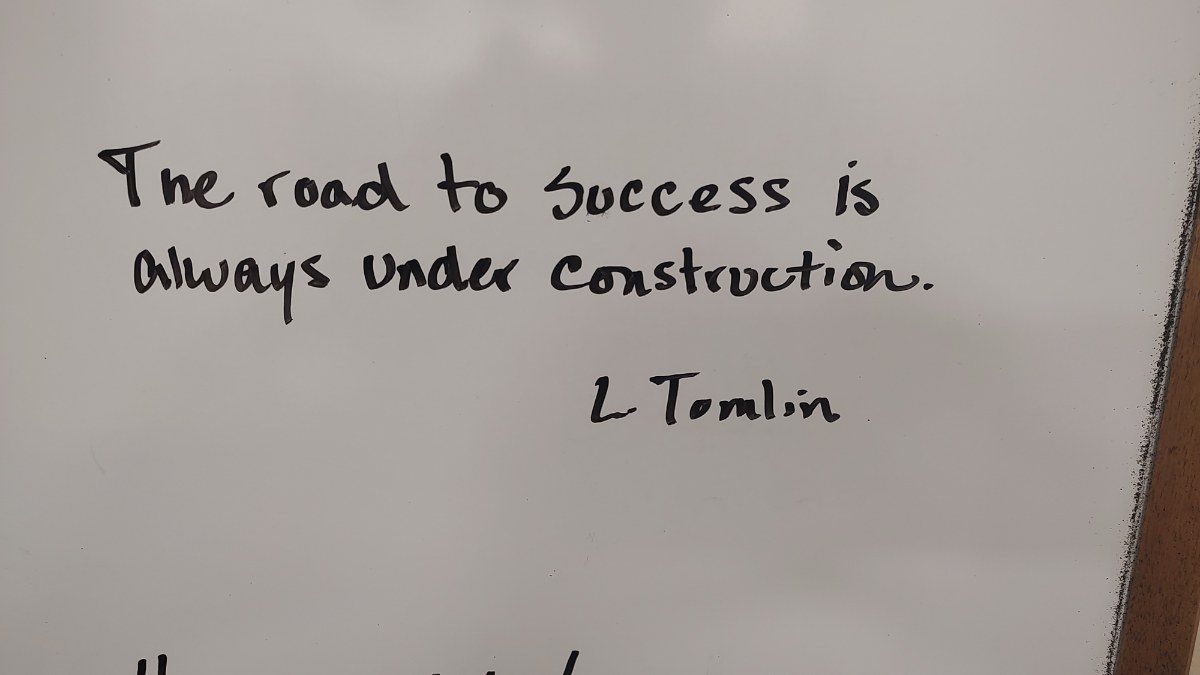 The road to success is
always under construction.
L Tomlin